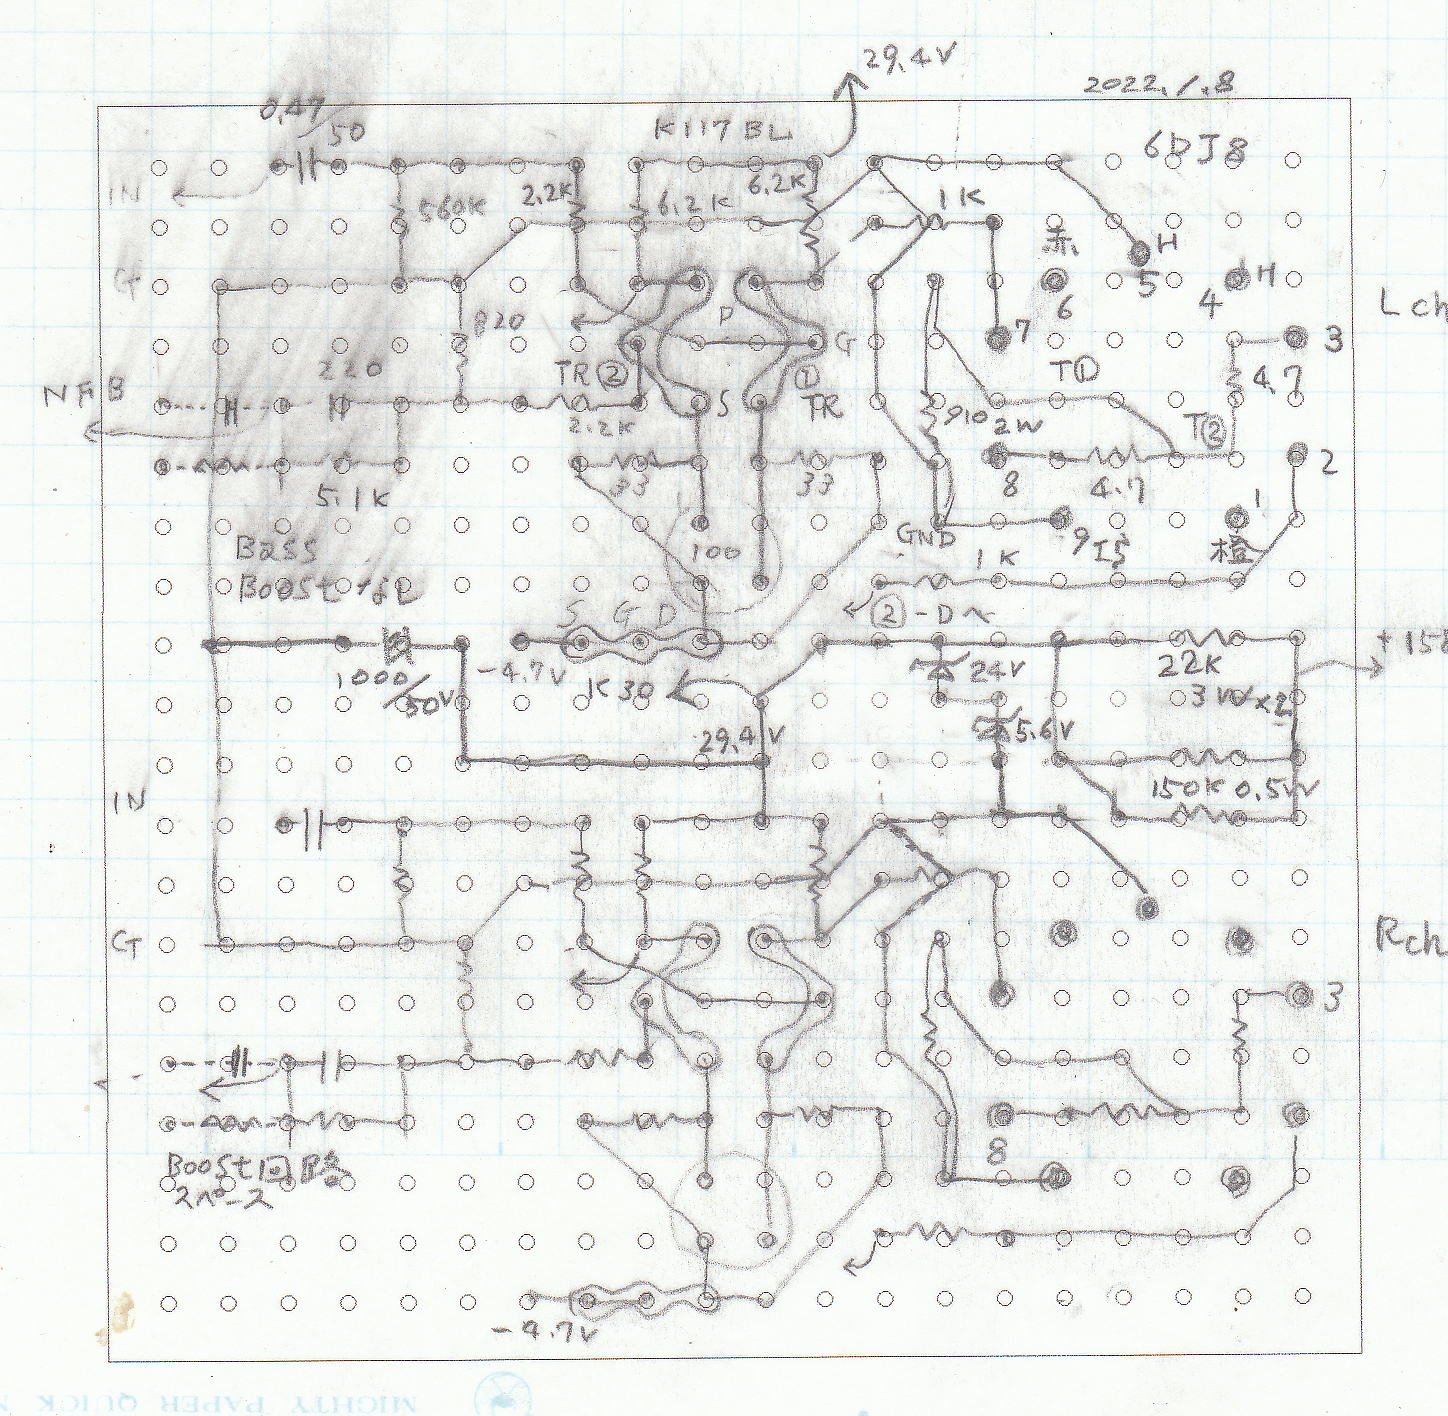 29.4V
2022.1.8
0.47/50
K117BL
6DJ8
IN
560K
2.2K
6.2K
6.2K
1K
赤
H
H
G
820
P
G
7
6
5
4
Lch
3
220
TR②
①
TR
T①
4.7
NFB
2.2K
S
910 2W
T②
33
33
8
4.7
2
5.1K
100
GND
9
1
橙
Bass
Boostなし
1K
②-Dへ
S G D
-4.7V
24V
22K
3W×2
1000/50V
K30
29.4V
5.6V
150K 0.5W
IN
G
Rch
3
8
Boost回路
スペース
-4.7V
MIGHTY PAPER QUICK